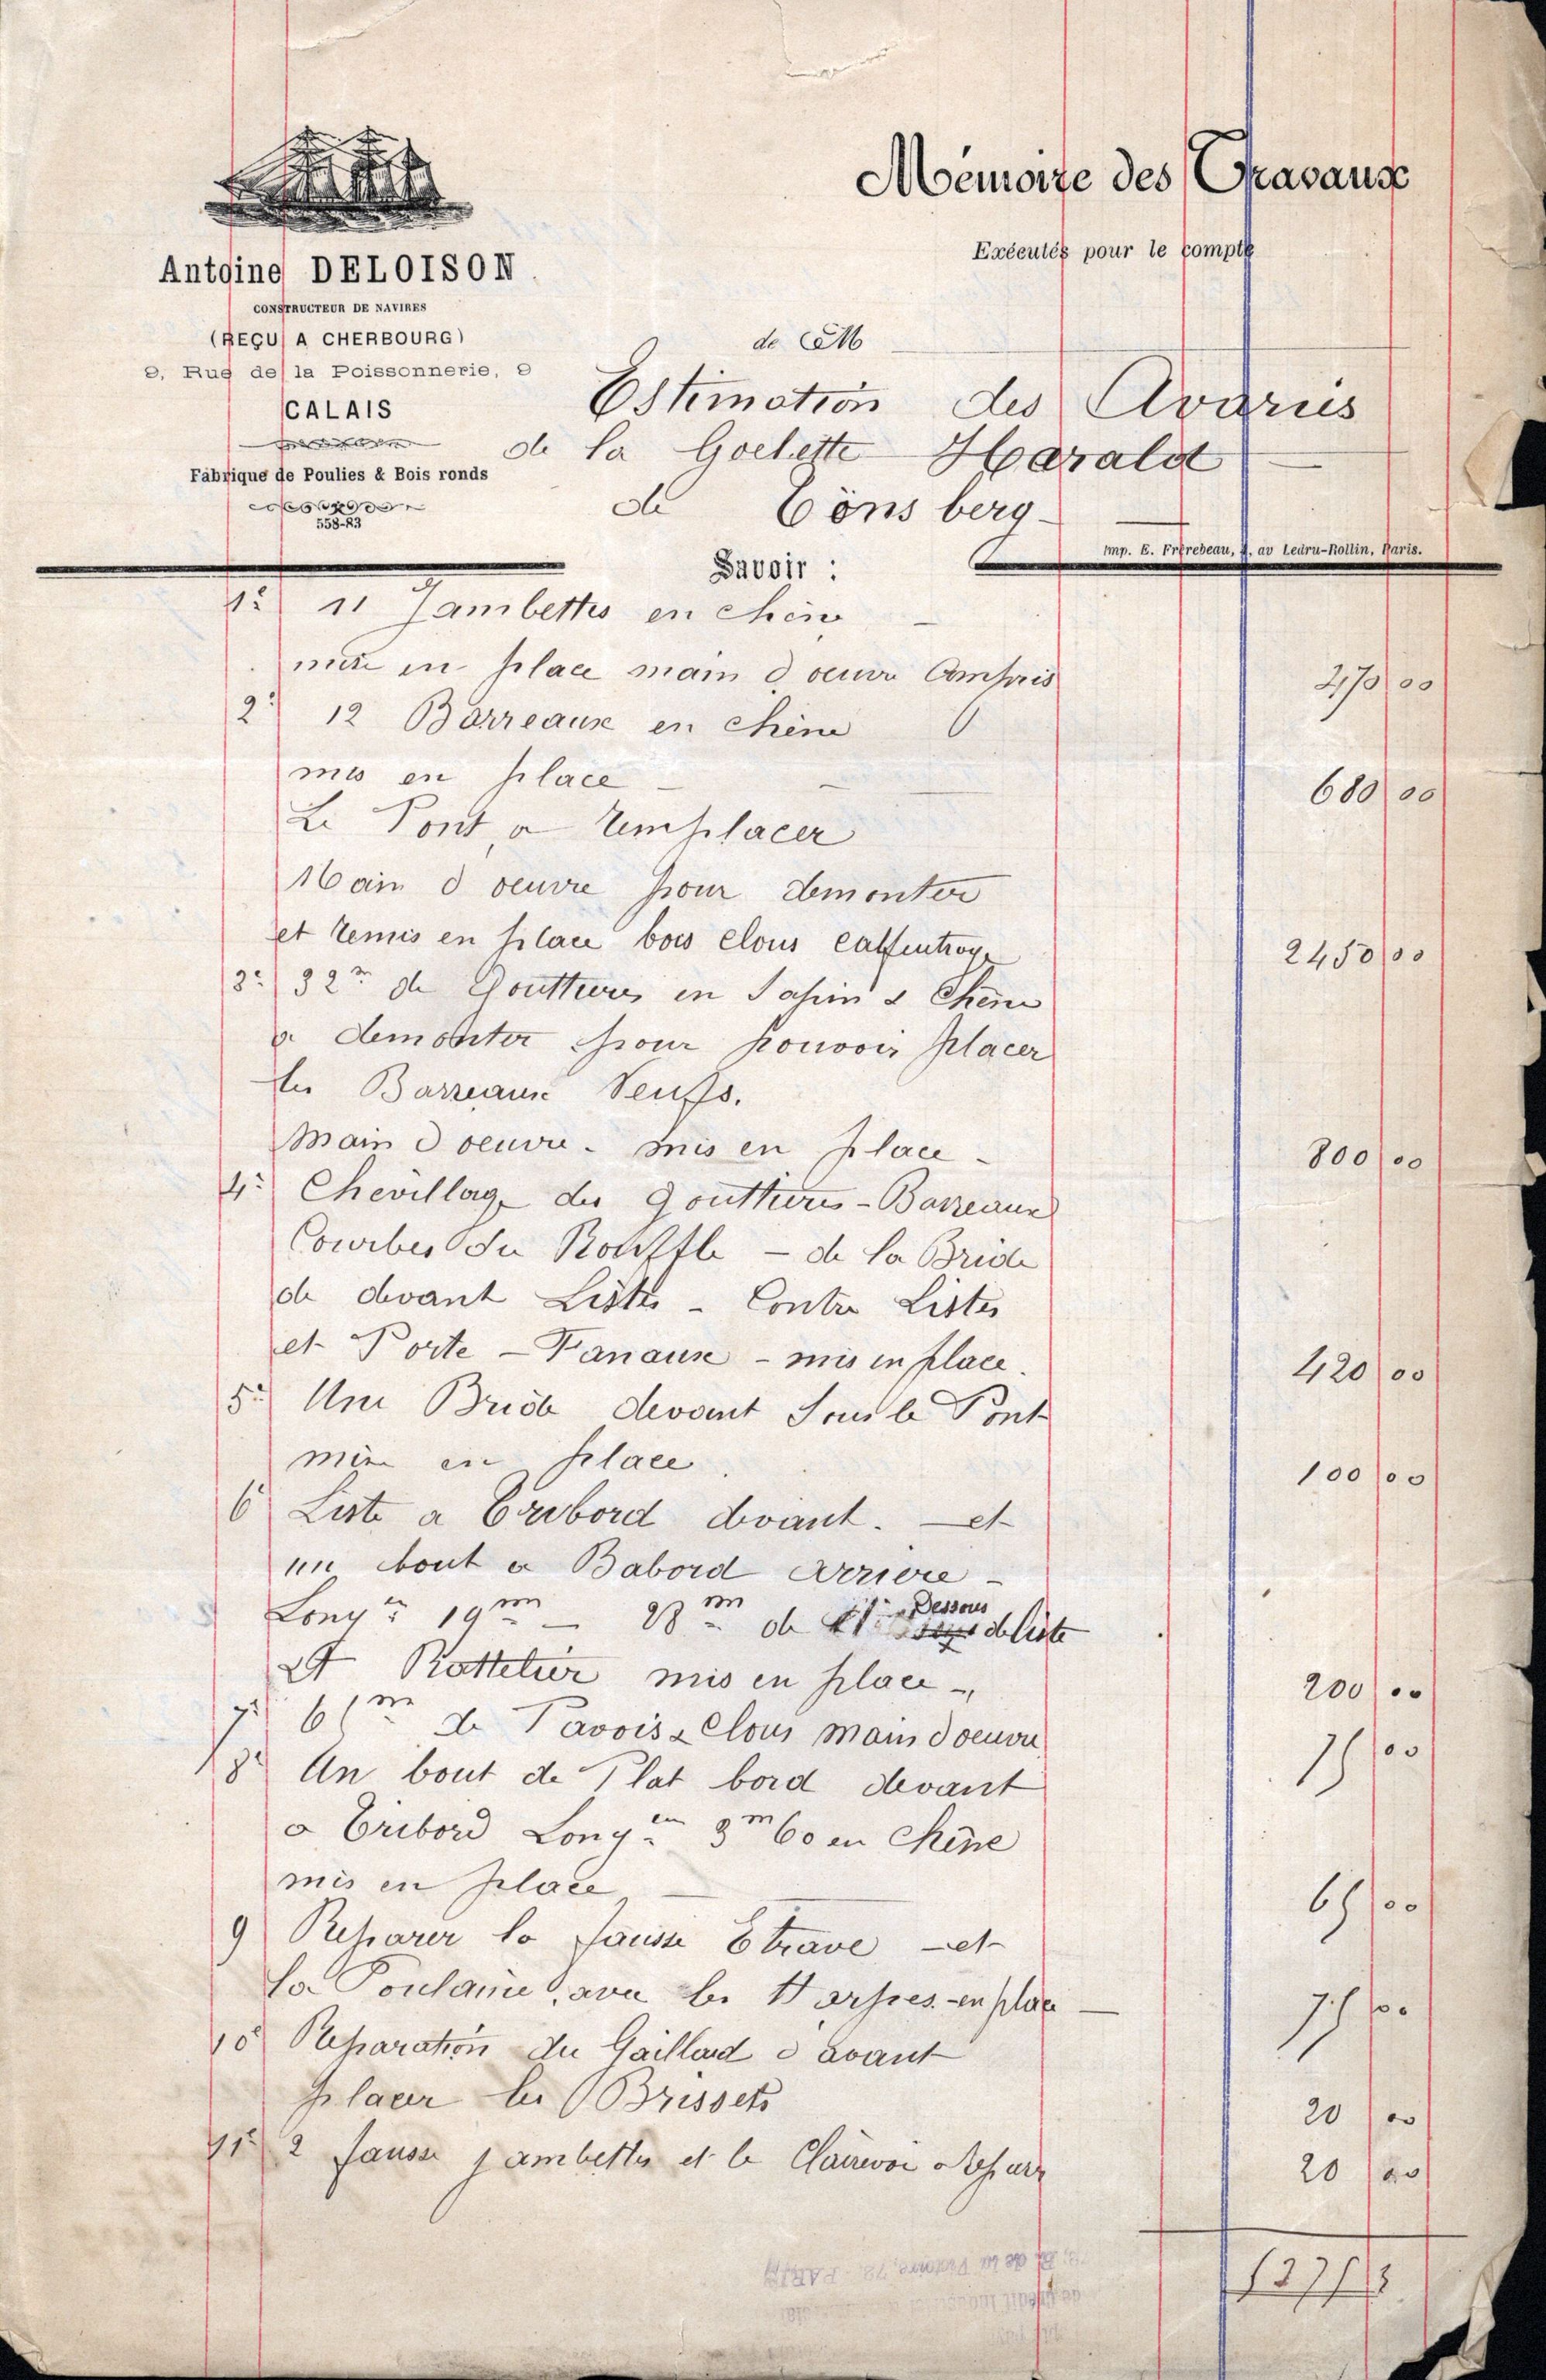 Mémoire des Travaux
Exécutés pour le compte
Antoine DELOISON
CONSTRUCTEUR DE NAVIRES
(REÇU A CHERBOURG)
9, Rue de la Poissonnerie, 9
CALAIS
Fabrique de Poulies & Bois ronds
558-83
de M
Estimation des Avaries
de la Goelette Harald
de Tönsberg
Imp. E. Frérebeau, av Ledru-Rollin, Paris.
Savoir :
1º 11 Jambettes en chêne
mise en place main d oeuvre Compris 270 00
2º 12 Barreaux en chêne
mis en place 680 00
Le Pont, a remplacer
Main d oeuvre pour demonter
et remis en place bois clous calfeutrage 2450 00
3º 32m de Gouttieres en Sapin & Chêne
a demonter pour pouvoir placer
les Barreaux Neufs.
Main d oeuvre - mis en place - 800 00
4º Chevillage des Gouttieres - Barreaux
Courbes du Rouffle - de la Bride
de devant Listes - Contre Listes
et Porte - Fanaux - mis en place. 420 00
5º Une Bride devant Sous le Pont
mise en place 100 00
6 Liste a Tribord devant. - et
un bout a Babord Arriere -
Longr 19m - 28m de Dessous de liste
et Rattelier mis en place - 200 00
7º 61m de Pavois & Clous main d oeuvre 75 00
8º Un bout de Plat bord devant
a Tribord Longr 3m 60 en Chêne
mis en place 65 00
9 Reparer la fausse Etrave - et
la Poulaine, avec les Harpes - en place 75 00
10º Reparation du Gaillard d avant
placer les Brissets 20 00
11º 2 fausse jambettes et le Clairevoi Repare 20 00